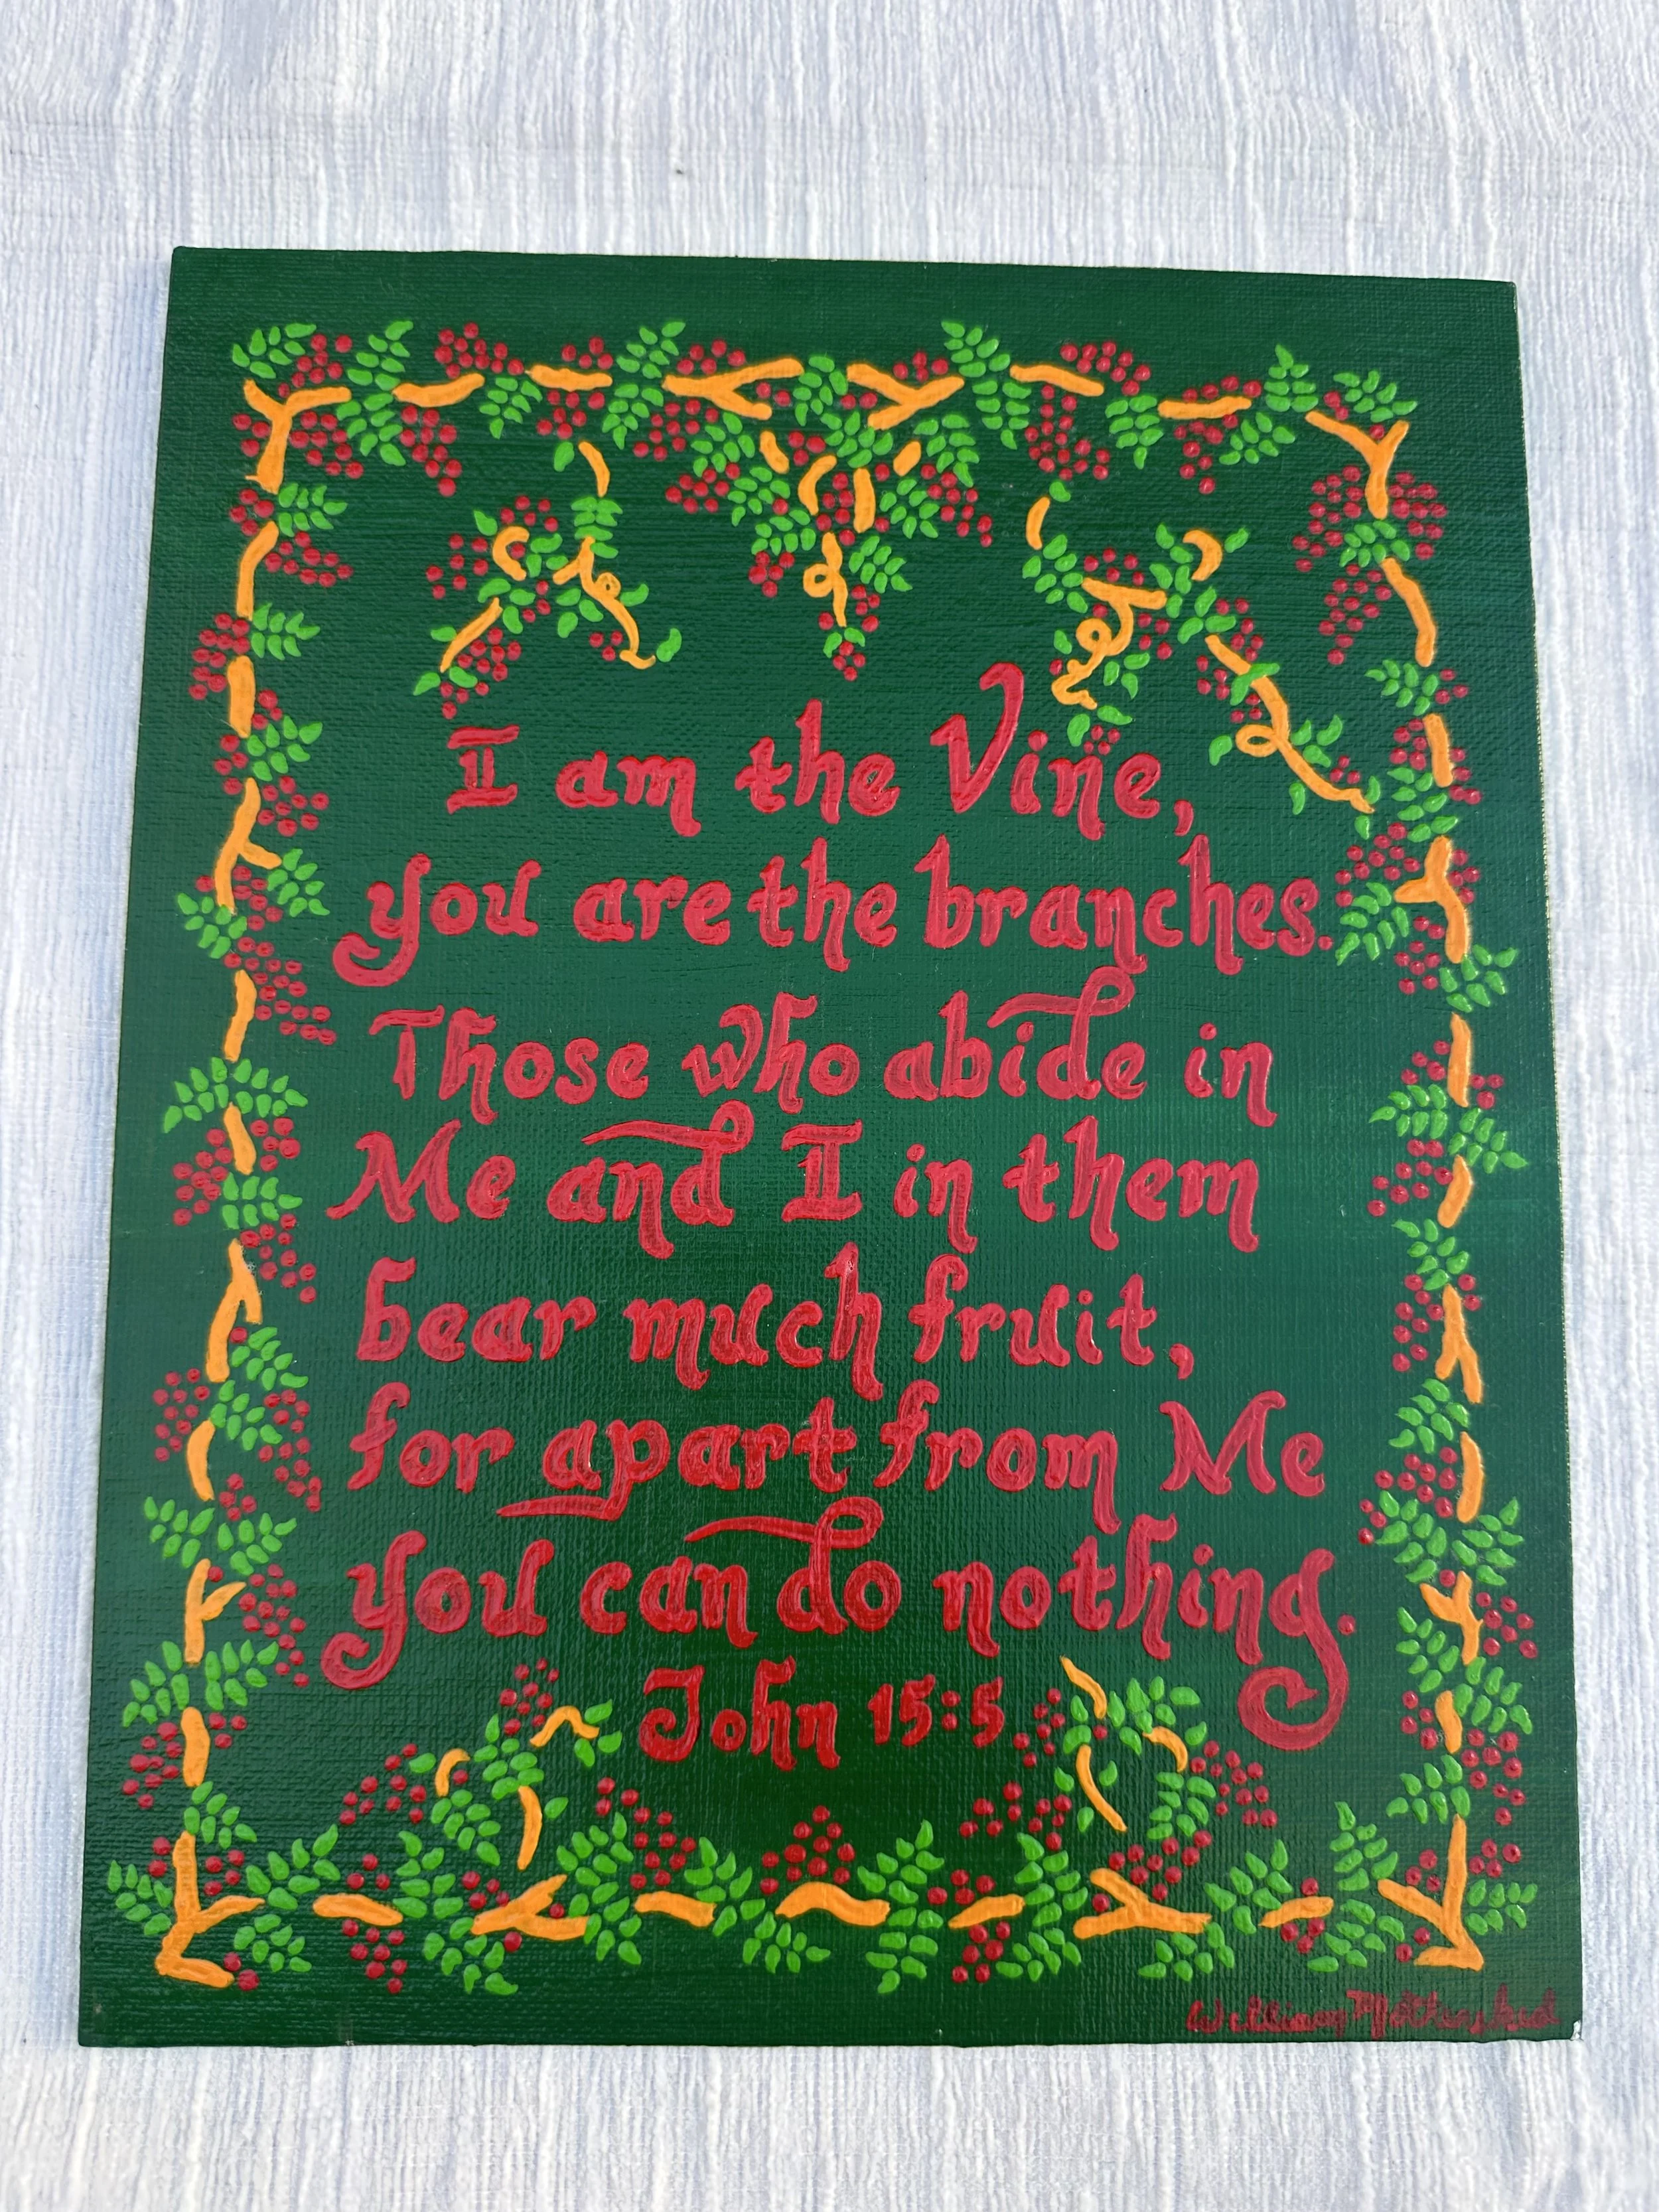 I am the Vine,
you are the branches.
Those who abide in
Me and I in them
bear much fruit,
for apart from Me
you can do nothing.
John 15:5
William Mothershed